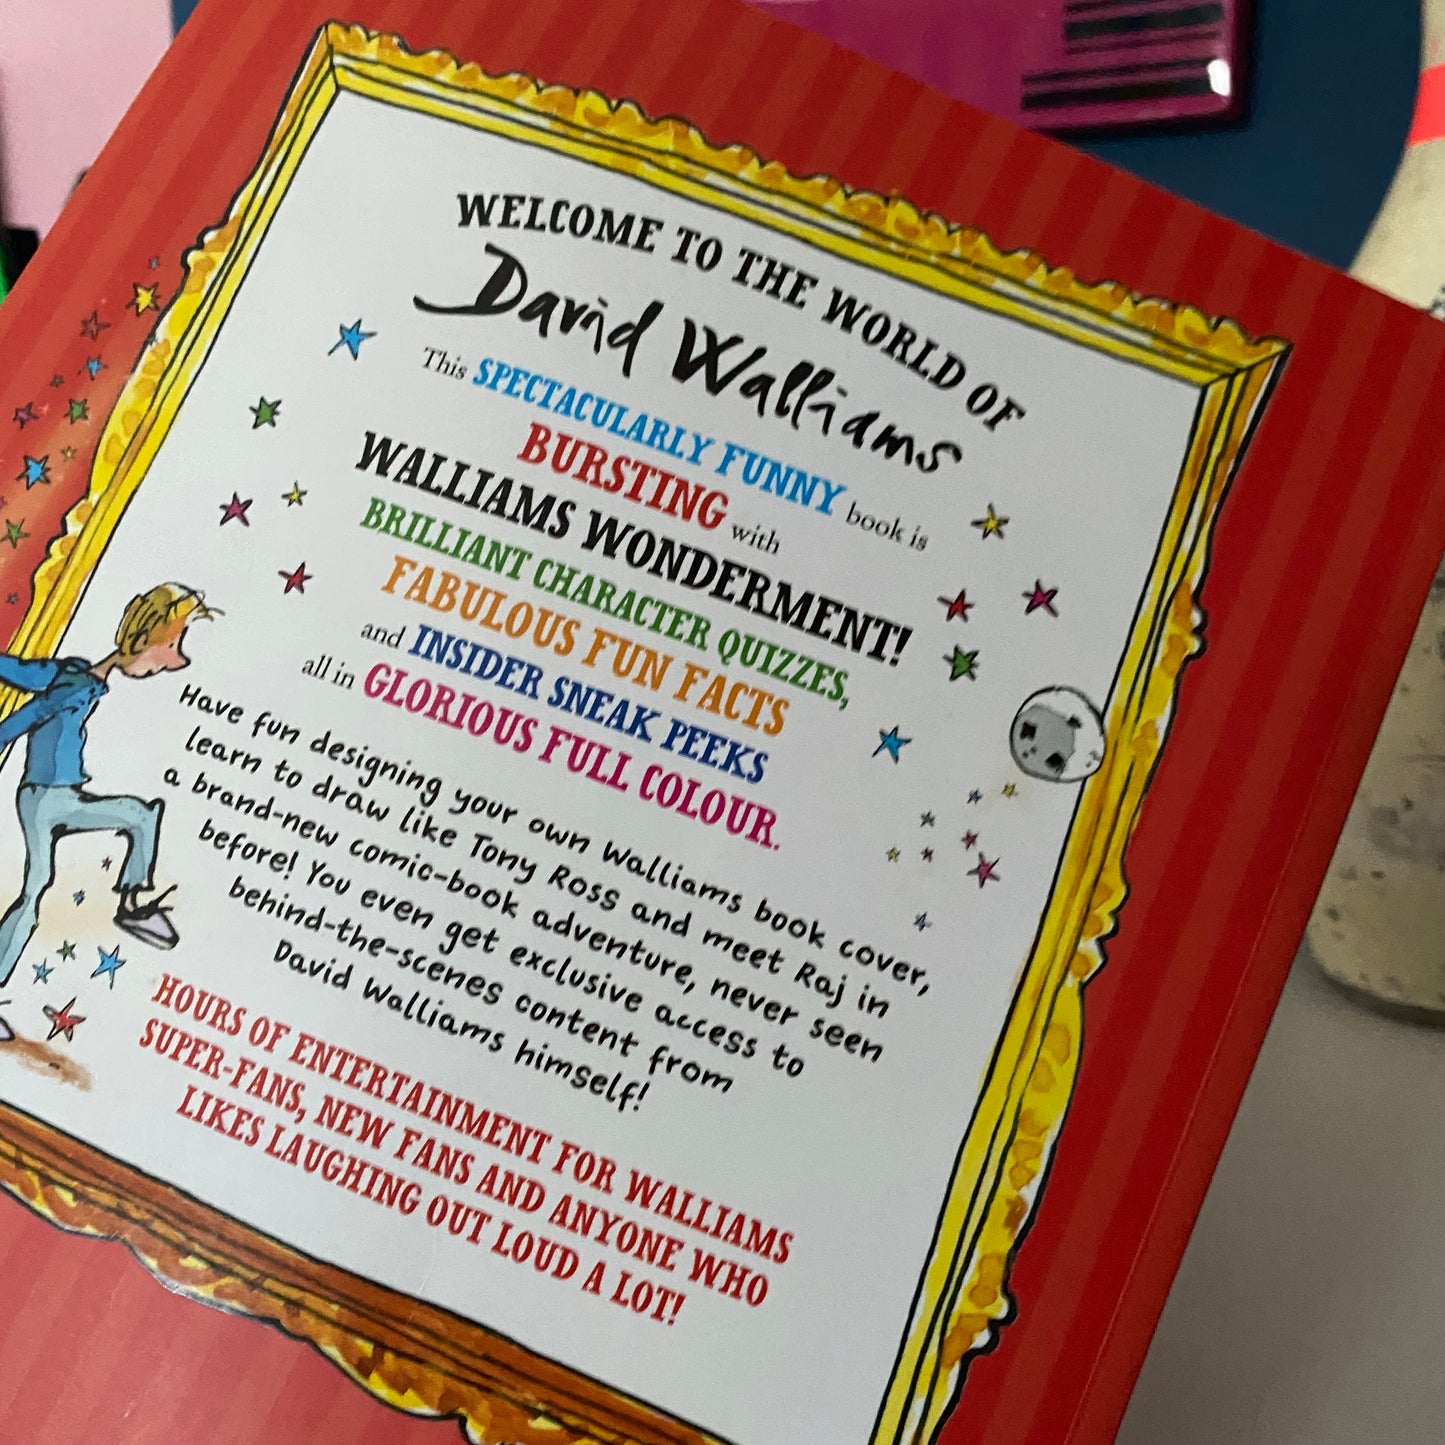 WELCOME TO THE WORLD OF
David Walliams
This SPECTACULARLY FUNNY book is
BURSTING with
WALLIAMS WONDERMENT!
BRILLIANT CHARACTER QUIZZES,
FABULOUS FUN FACTS
and INSIDER SNEAK PEEKS
all in GLORIOUS FULL COLOUR.
Have fun designing your own Walliams book cover,
learn to draw like Tony Ross and meet Raj in
a brand-new comic-book adventure, never seen
before! You even get exclusive access to
behind-the-scenes content from
David Walliams himself!
HOURS OF ENTERTAINMENT FOR WALLIAMS
SUPER-FANS, NEW FANS AND ANYONE WHO
LIKES LAUGHING OUT LOUD A LOT!